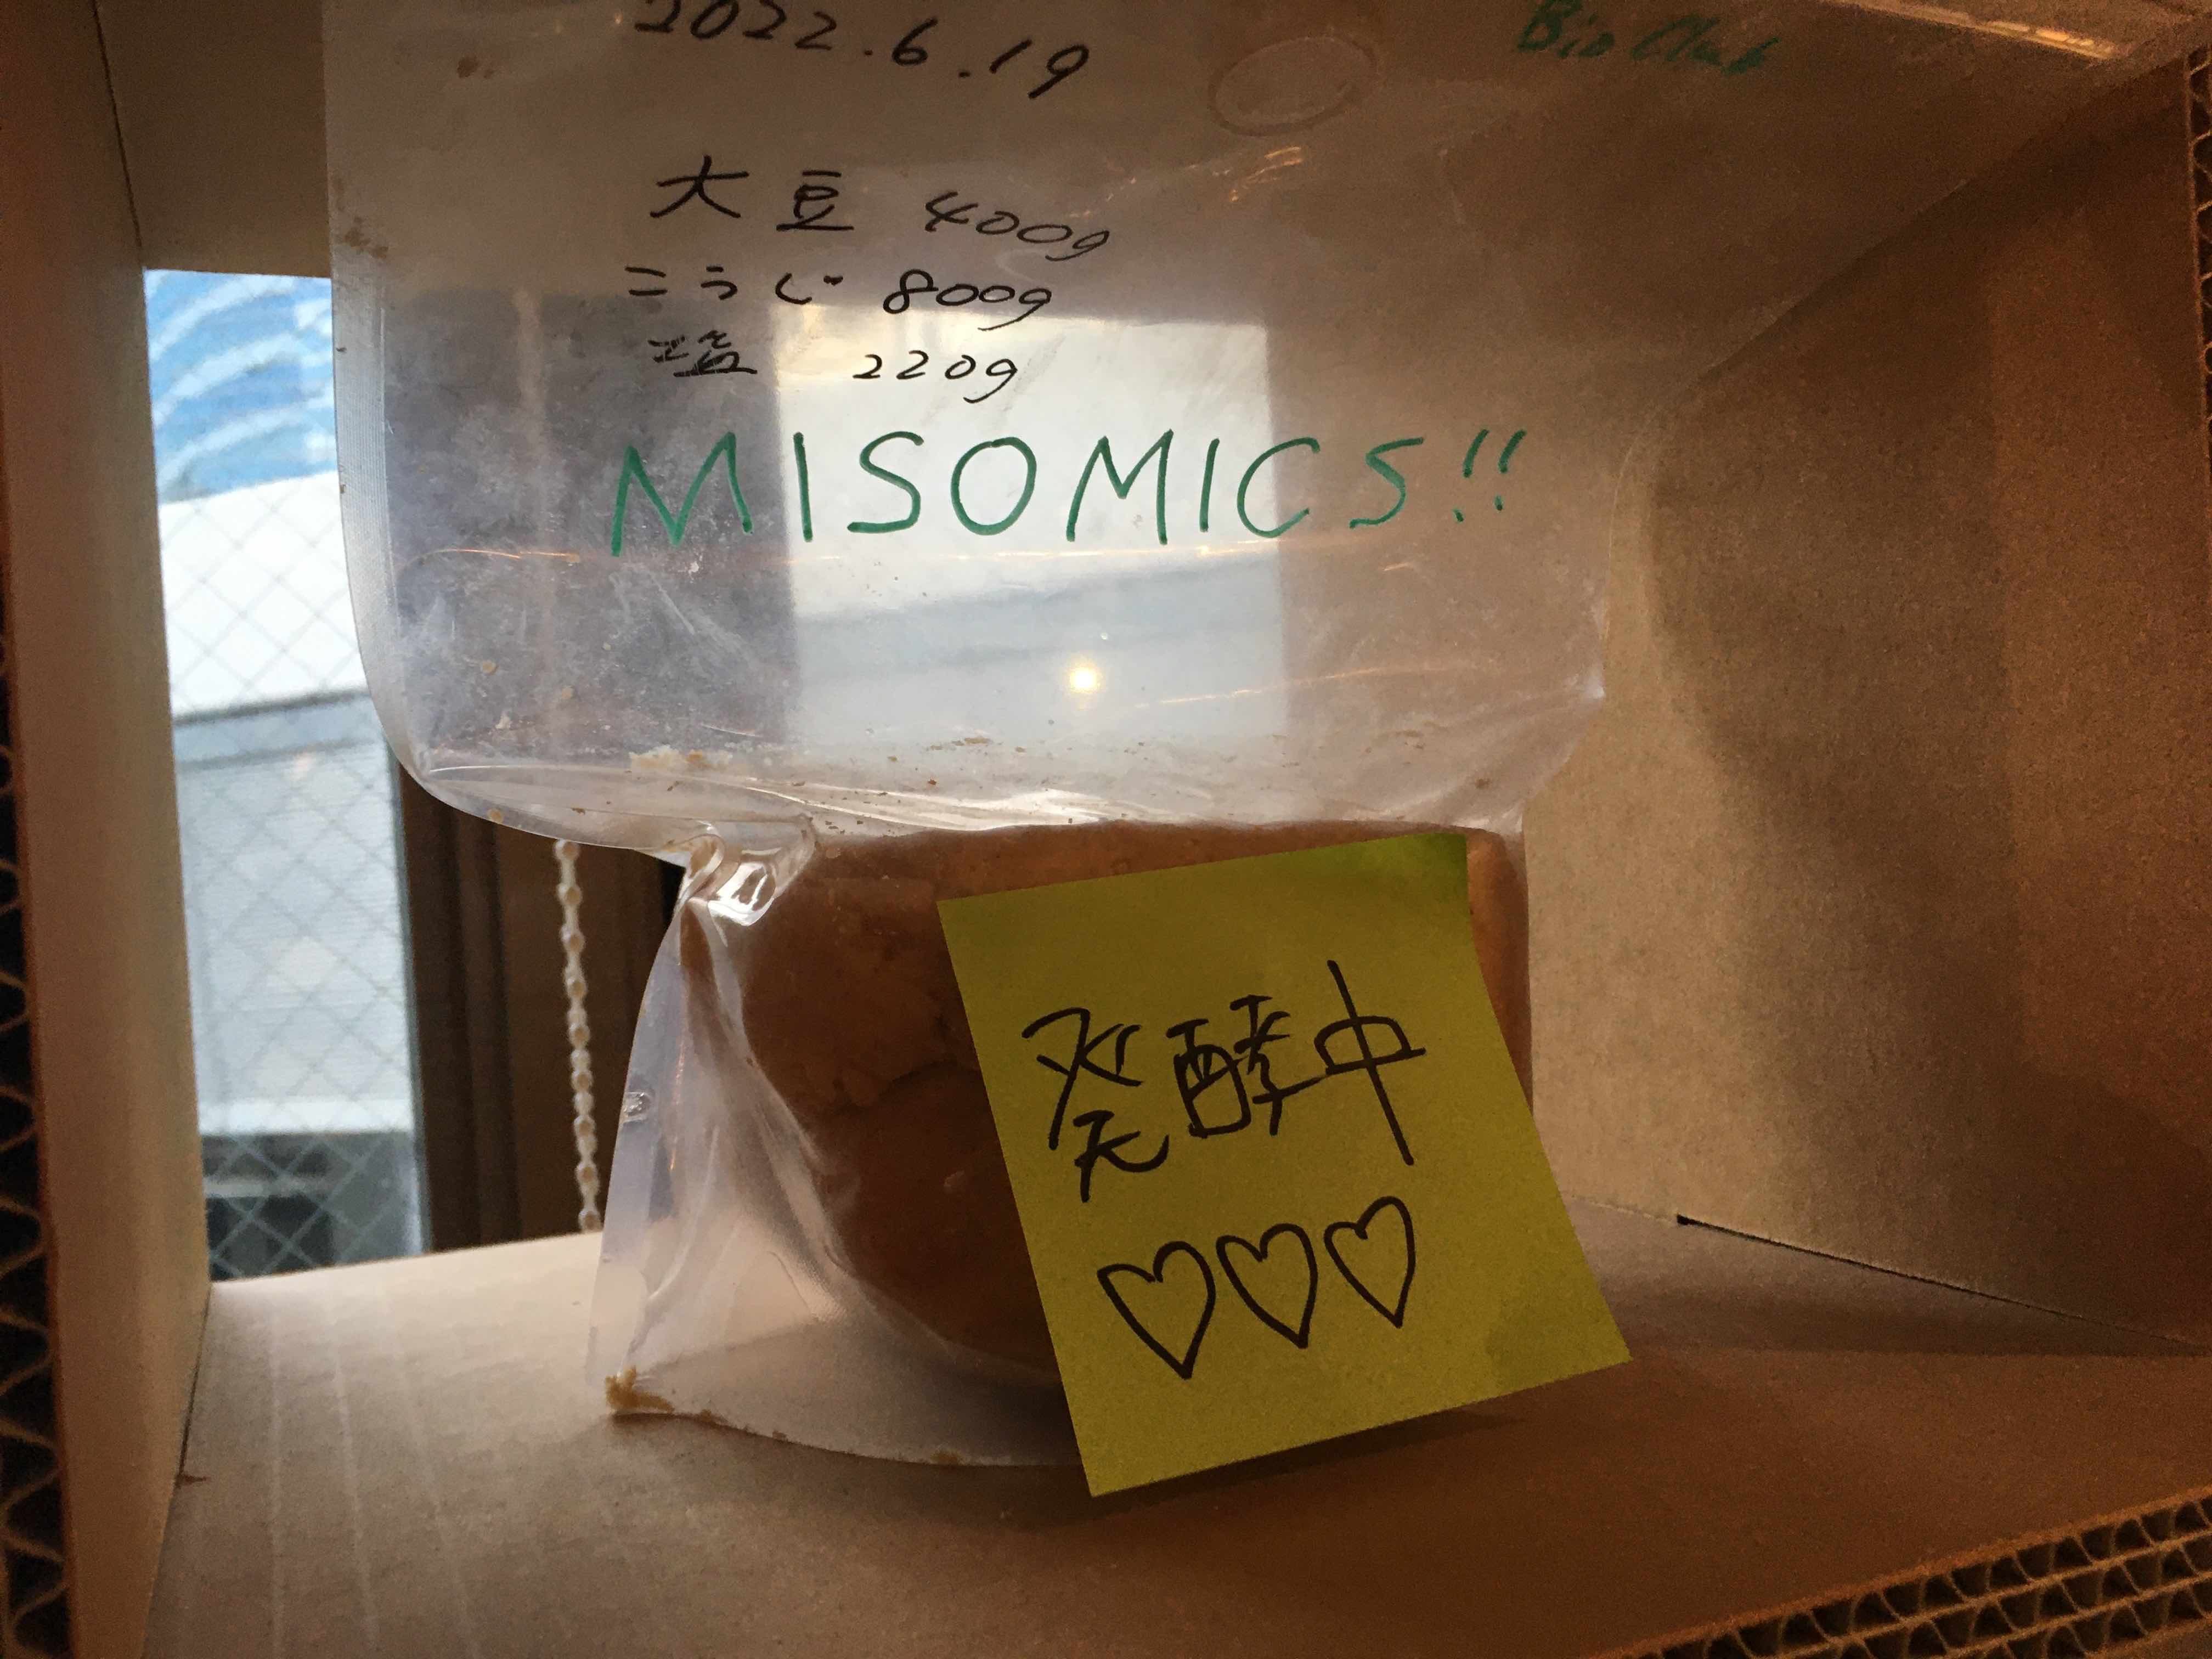 2022.6.19
Bio Club
大豆 400g
こうじ 800g
塩 220g
MISOMICS!!
発酵中
♡♡♡